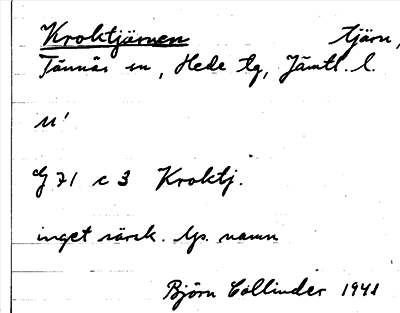 Kroktjärnen tjärn,
Tännäs sn, Hede tg, Jämtl. l.
N'
G 71 c 3 Kroktj.
inget särsk. lp. namn
Björn Collinder 1941